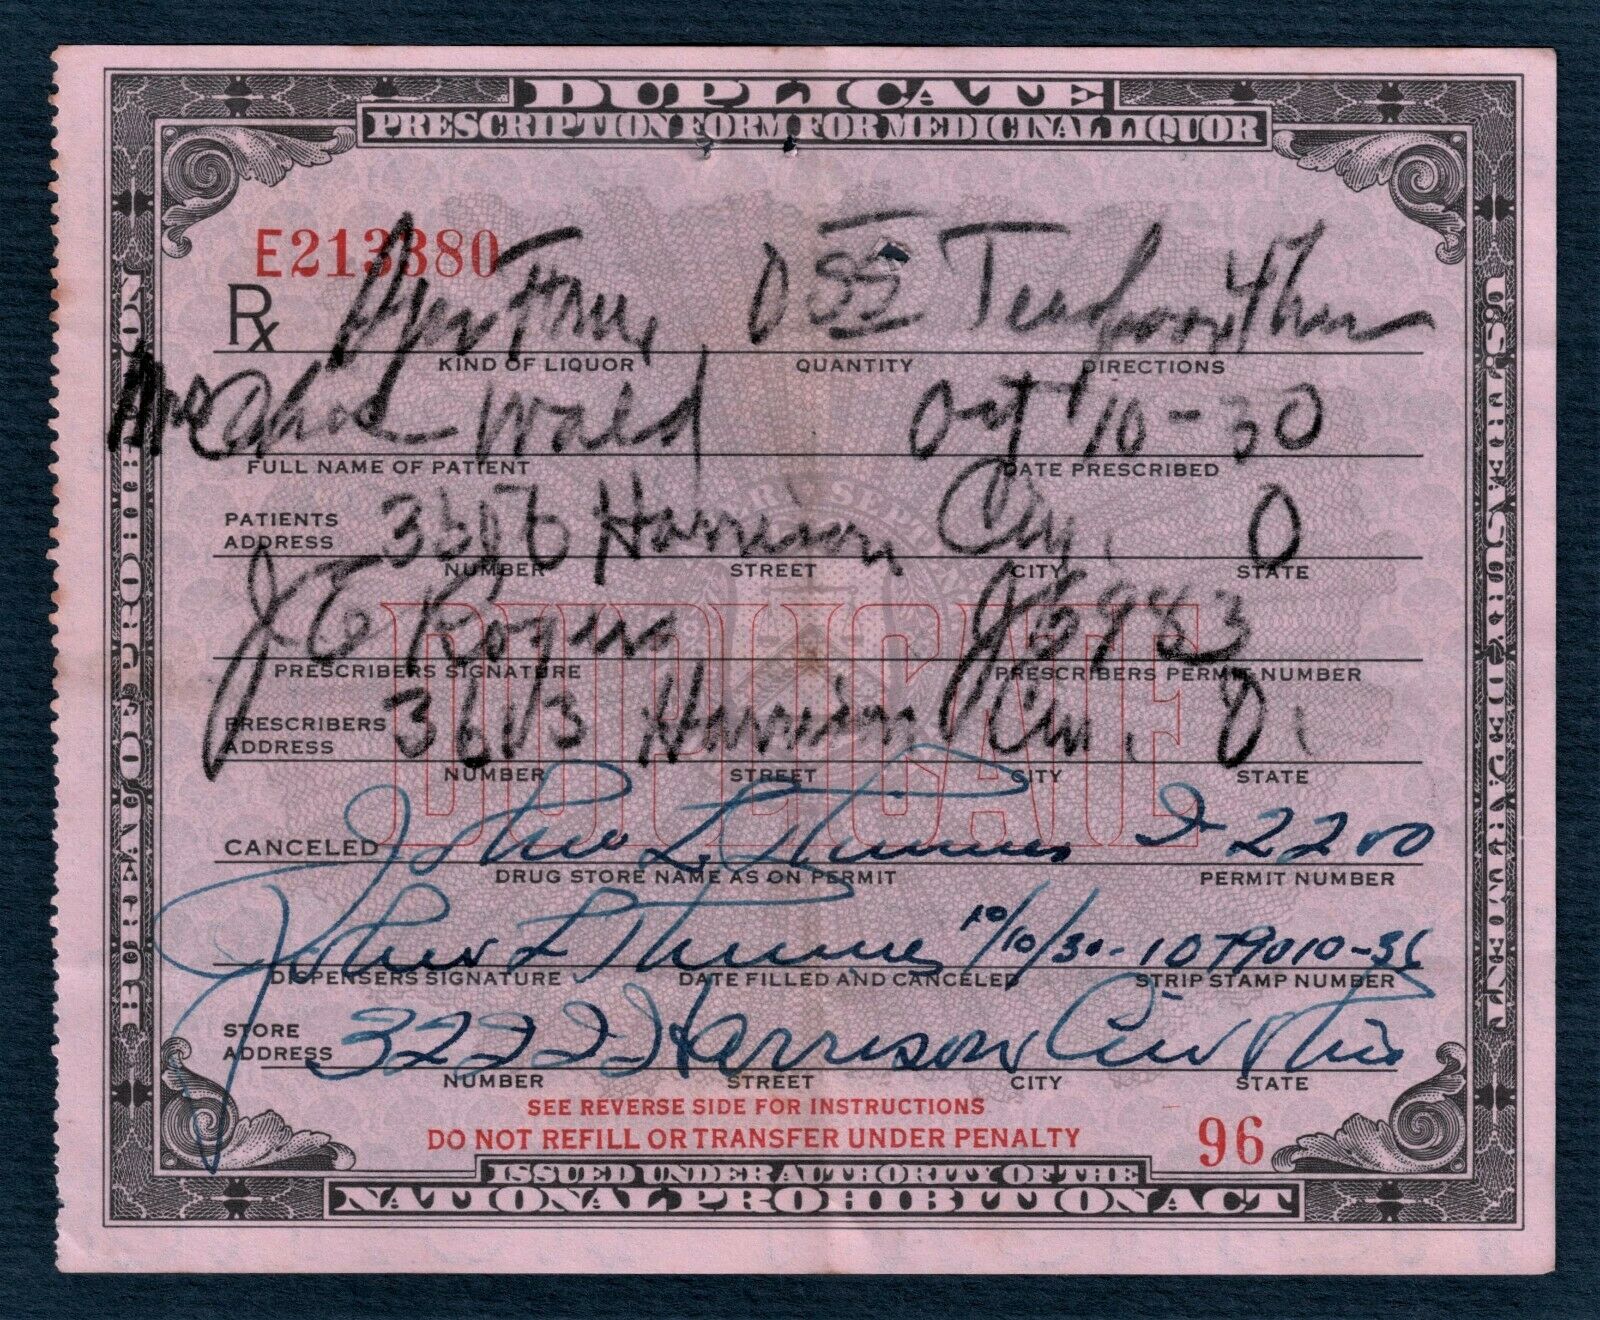 DUPLICATE
PRESCRIPTION FORM FOR MEDICINAL LIQUOR
E213380
Rx
KIND OF LIQUOR QUANTITY DIRECTIONS
Wald Oct 10-30
FULL NAME OF PATIENT DATE PRESCRIBED
PATIENTS ADDRESS Harrison Cin. O
NUMBER STREET CITY STATE
J E Rogers
PRESCRIBERS SIGNATURE PRESCRIBERS PERMIT NUMBER
PRESCRIBERS ADDRESS 3613 Harrison Cin. O.
NUMBER STREET CITY STATE
DUPLICATE
CANCELED John L
DRUG STORE NAME AS ON PERMIT PERMIT NUMBER
John L 10/10/30-1079010-36
DISPENSERS SIGNATURE DATE FILLED AND CANCELED STRIP STAMP NUMBER
STORE ADDRESS 3222 Harrison Cin Ohio
NUMBER STREET CITY STATE
SEE REVERSE SIDE FOR INSTRUCTIONS
DO NOT REFILL OR TRANSFER UNDER PENALTY
96
ISSUED UNDER AUTHORITY OF THE
NATIONAL PROHIBITION ACT